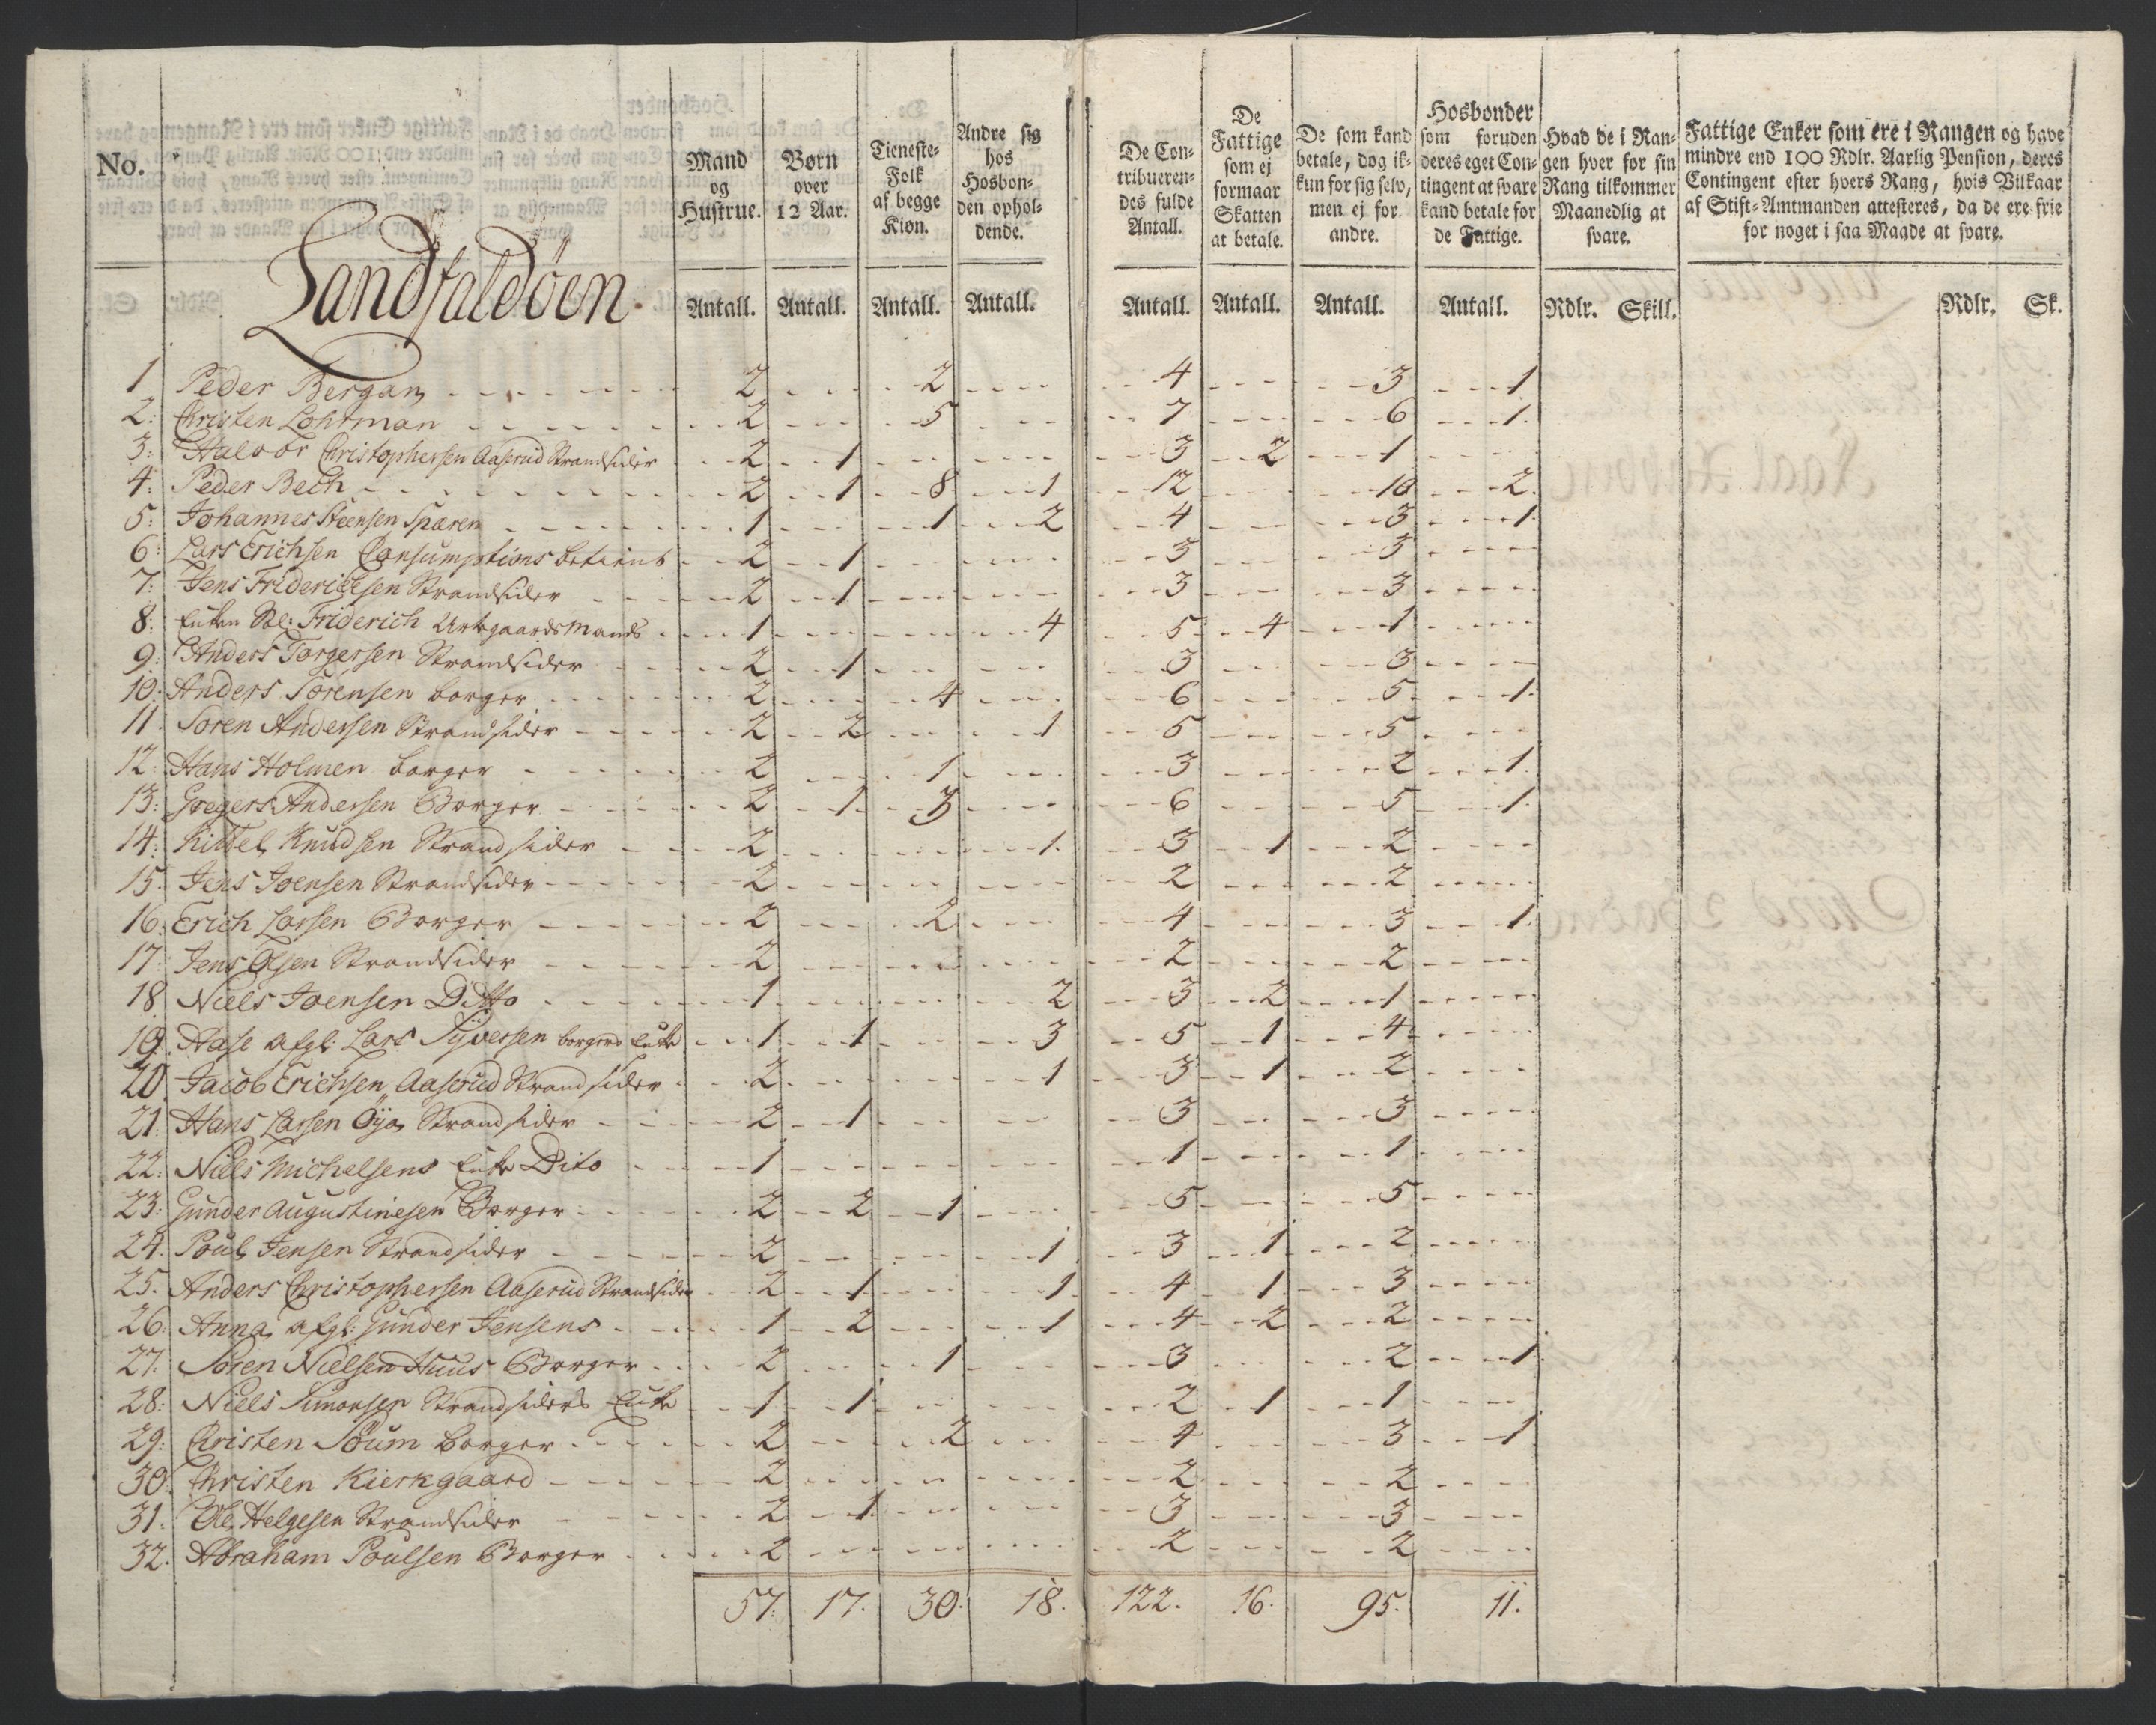 No. | Mand og Hustrue. | Børn over 12 Aar. | Tieneste-Folk af begge Kiøn. | Andre sig hos Hosbonden ophol-dende. | De Con-tribueren-des fulde Antall. | De Fattige som ej formaar Skatten at betale. | De som kand betale, dog ik-kun for sig selv, men ej for andre. | Hosbonder som foruden deres eget Con-tingent at svare kand betale for de Fattige. | Hvad de i Ran-gen hver for sin Rang tilkommer Maanedlig at svare. | Fattige Enker som ere i Rangen og have mindre end 100 Rdlr. Aarlig Pension, deres Contingent efter hvers Rang, hvis Vilkaar af Stift-Amtmanden attesteres, da de ere frie for noget i saa Maade at svare.
Landfaldøen. | Antall. | Antall. | Antall. | Antall. | Antall. | Antall. | Antall. | Antall. | Rdlr. Skill. | Rdlr. Sk.
1 Peder Bergan | 2 | | 2 | | 4 | | 3 | 1
2: Christen Lohrman | 2 | | 5 | | 7 | | 6 | 1.
3: Halvor Christophersen Aaserud Strandsider | 2 | 1 | | | 3 | 2 | 1
4: Peder Bech | 2 | 1 | 8 | 1 | 12 | | 10 | 2.
5: Johannes Steensen Sparen | 1 | | 1 | 2 | 4 | | 3 | 1.
6: Lars Erichsen Consumptions betient | 2 | 1 | | | 3 | | 3
7: Jens Friderichsen Strandsider | 2 | 1 | | | 3 | | 3
8: Enken Sl: Friderich Urtegaards Mands | 1 | | | 4 | 5 | 4 | 1
9: Anders Torgersen Strandsider | 2 | 1 | | | 3 | | 3
10: Anders Sørensen borger | 2 | | 4 | | 6 | | 5 | 1.
11 Søren Andersen Strandsider | 2 | 2 | | 1 | 5 | | 5
12: Hans Holmen borger | 2 | | 1 | | 3 | | 2 | 1.
13: Gregers Andersen Borger | 2 | 1 | 3 | | 6 | | 5 | 1.
14: Kittel Knudsen Strandsider | 2 | | | 1. | 3 | 1 | 2
15: Jens Joensen Strandsider | 2 | | | | 2 | | 2
16: Erich Larsen Borger | 2 | | 2 | | 4 | | 3 | 1.
17: Jens Olsen Strandsider | 2 | | | | 2 | | 2
18 Niels Joensen Ditto | 1 | | | 2 | 3 | 2 | 1
19. Aase afgl: Lars Syversen borgers Enke | 1 | 1 | | 3 | 5 | 1 | 4
20. Jacob Erichsen Aaserud Strandsider | 2 | | | 1 | 3 | 1 | 2
21: Hans Larsen Øya Strandsider | 2 | 1 | | | 3 | | 3
22: Niels Michelsens Enke Dito | 1 | | | | 1 | | 1
23: Gunder Augustinesen Borger | 2 | 2 | 1 | | 5 | | 5
24. Poul Jensen Strandsider | 2 | | | 1 | 3 | 1 | 2
25. Anders Christophersen Aaserud Strandsider | 2 | 1 | | 1 | 4 | 1 | 3
26: Anna afgl: Gunder Jensens | 1 | 2 | | 1 | 4 | 2 | 2
27: Søren Nielsen Huus Borger | 2 | | 1 | | 3 | | 2 | 1.
28: Niels Simonsen Strandsiders Enke | 1 | 1 | | | 2 | 1 | 1
29: Christen Soum borger | 2 | | 2 | | 4 | | 3 | 1
30: Christen Kierkgaard | 2 | | | | 2 | | 2
31: Ole Helgesen Strandsider | 2 | 1 | | | 3 | | 3
32. Abraham Poulsen Borger | 2 | | | | 2 | | 2
57: | 17. | 30: | 18. | 122. | 16. | 95. | 11.